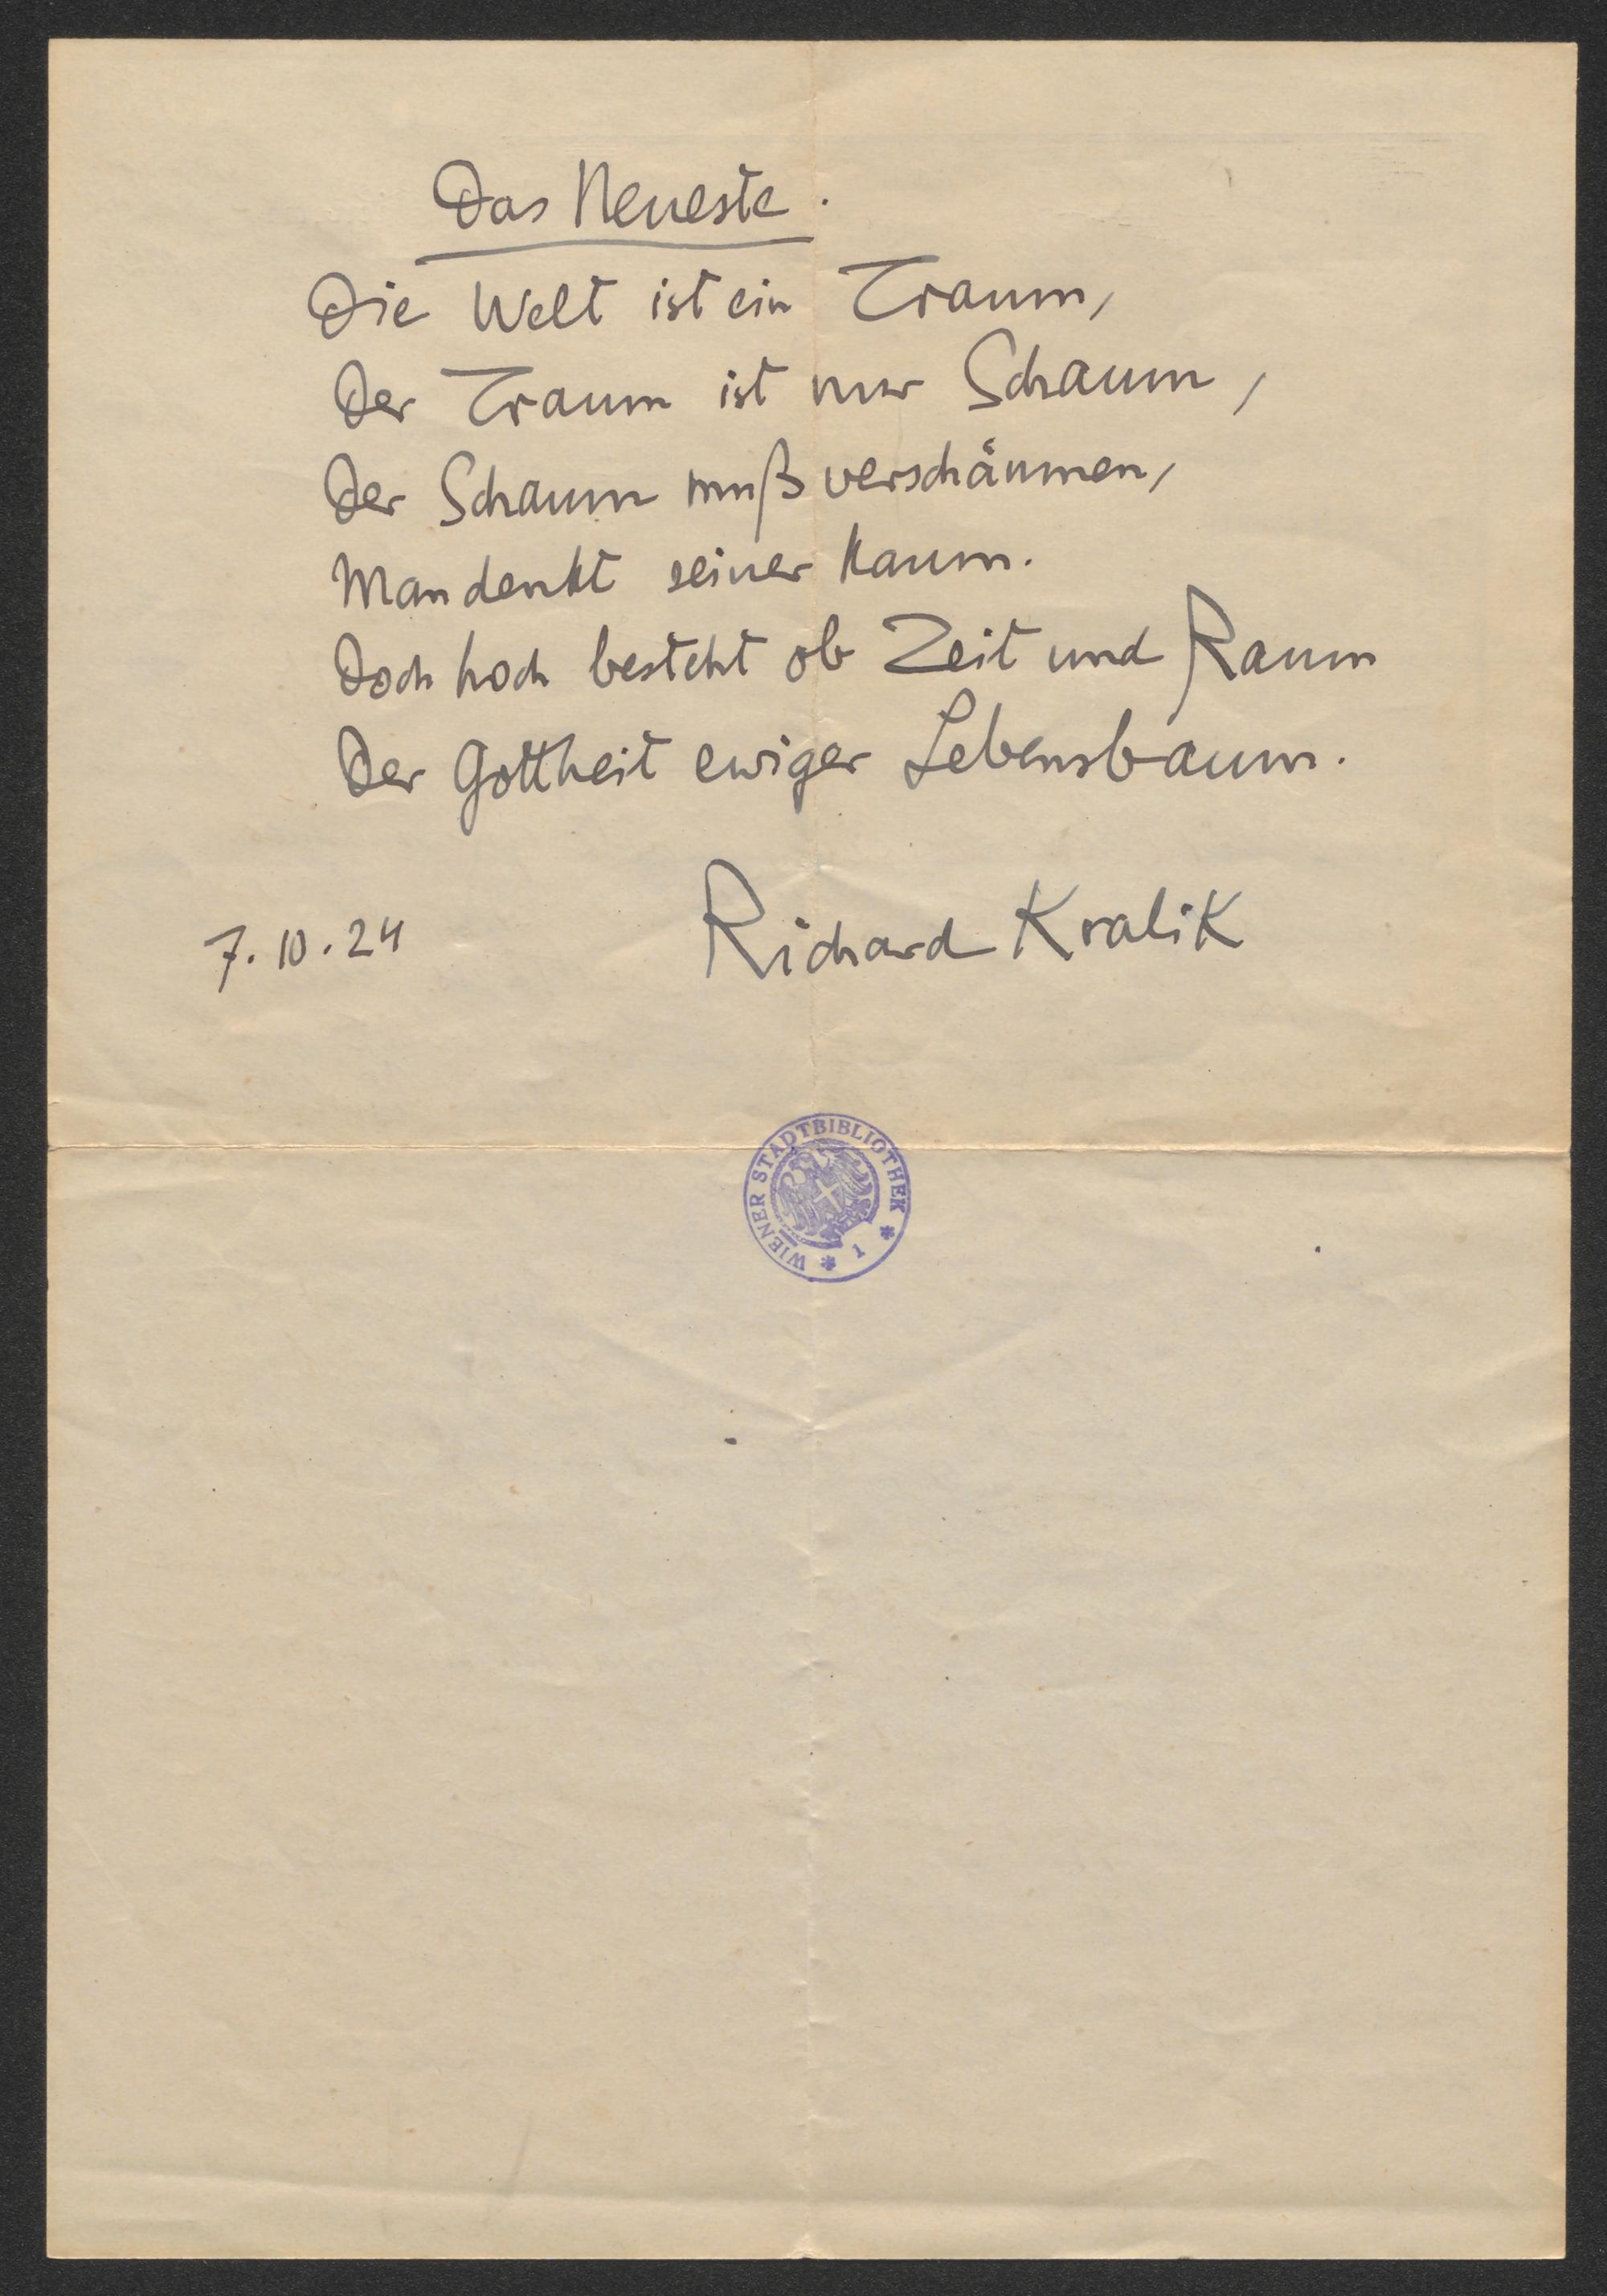 Das Neueste.
Die Welt ist ein Traum,
Der Traum ist nur Schaum,
Der Schaum muß verschäumen,
Man denkt seiner kaum.
Doch hoch besteht ob Zeit und Raum
Der Gottheit ewiger Lebensbaum.
7.10.24 Richard Kralik
WIENER STADTBIBLIOTHEK * 1 *